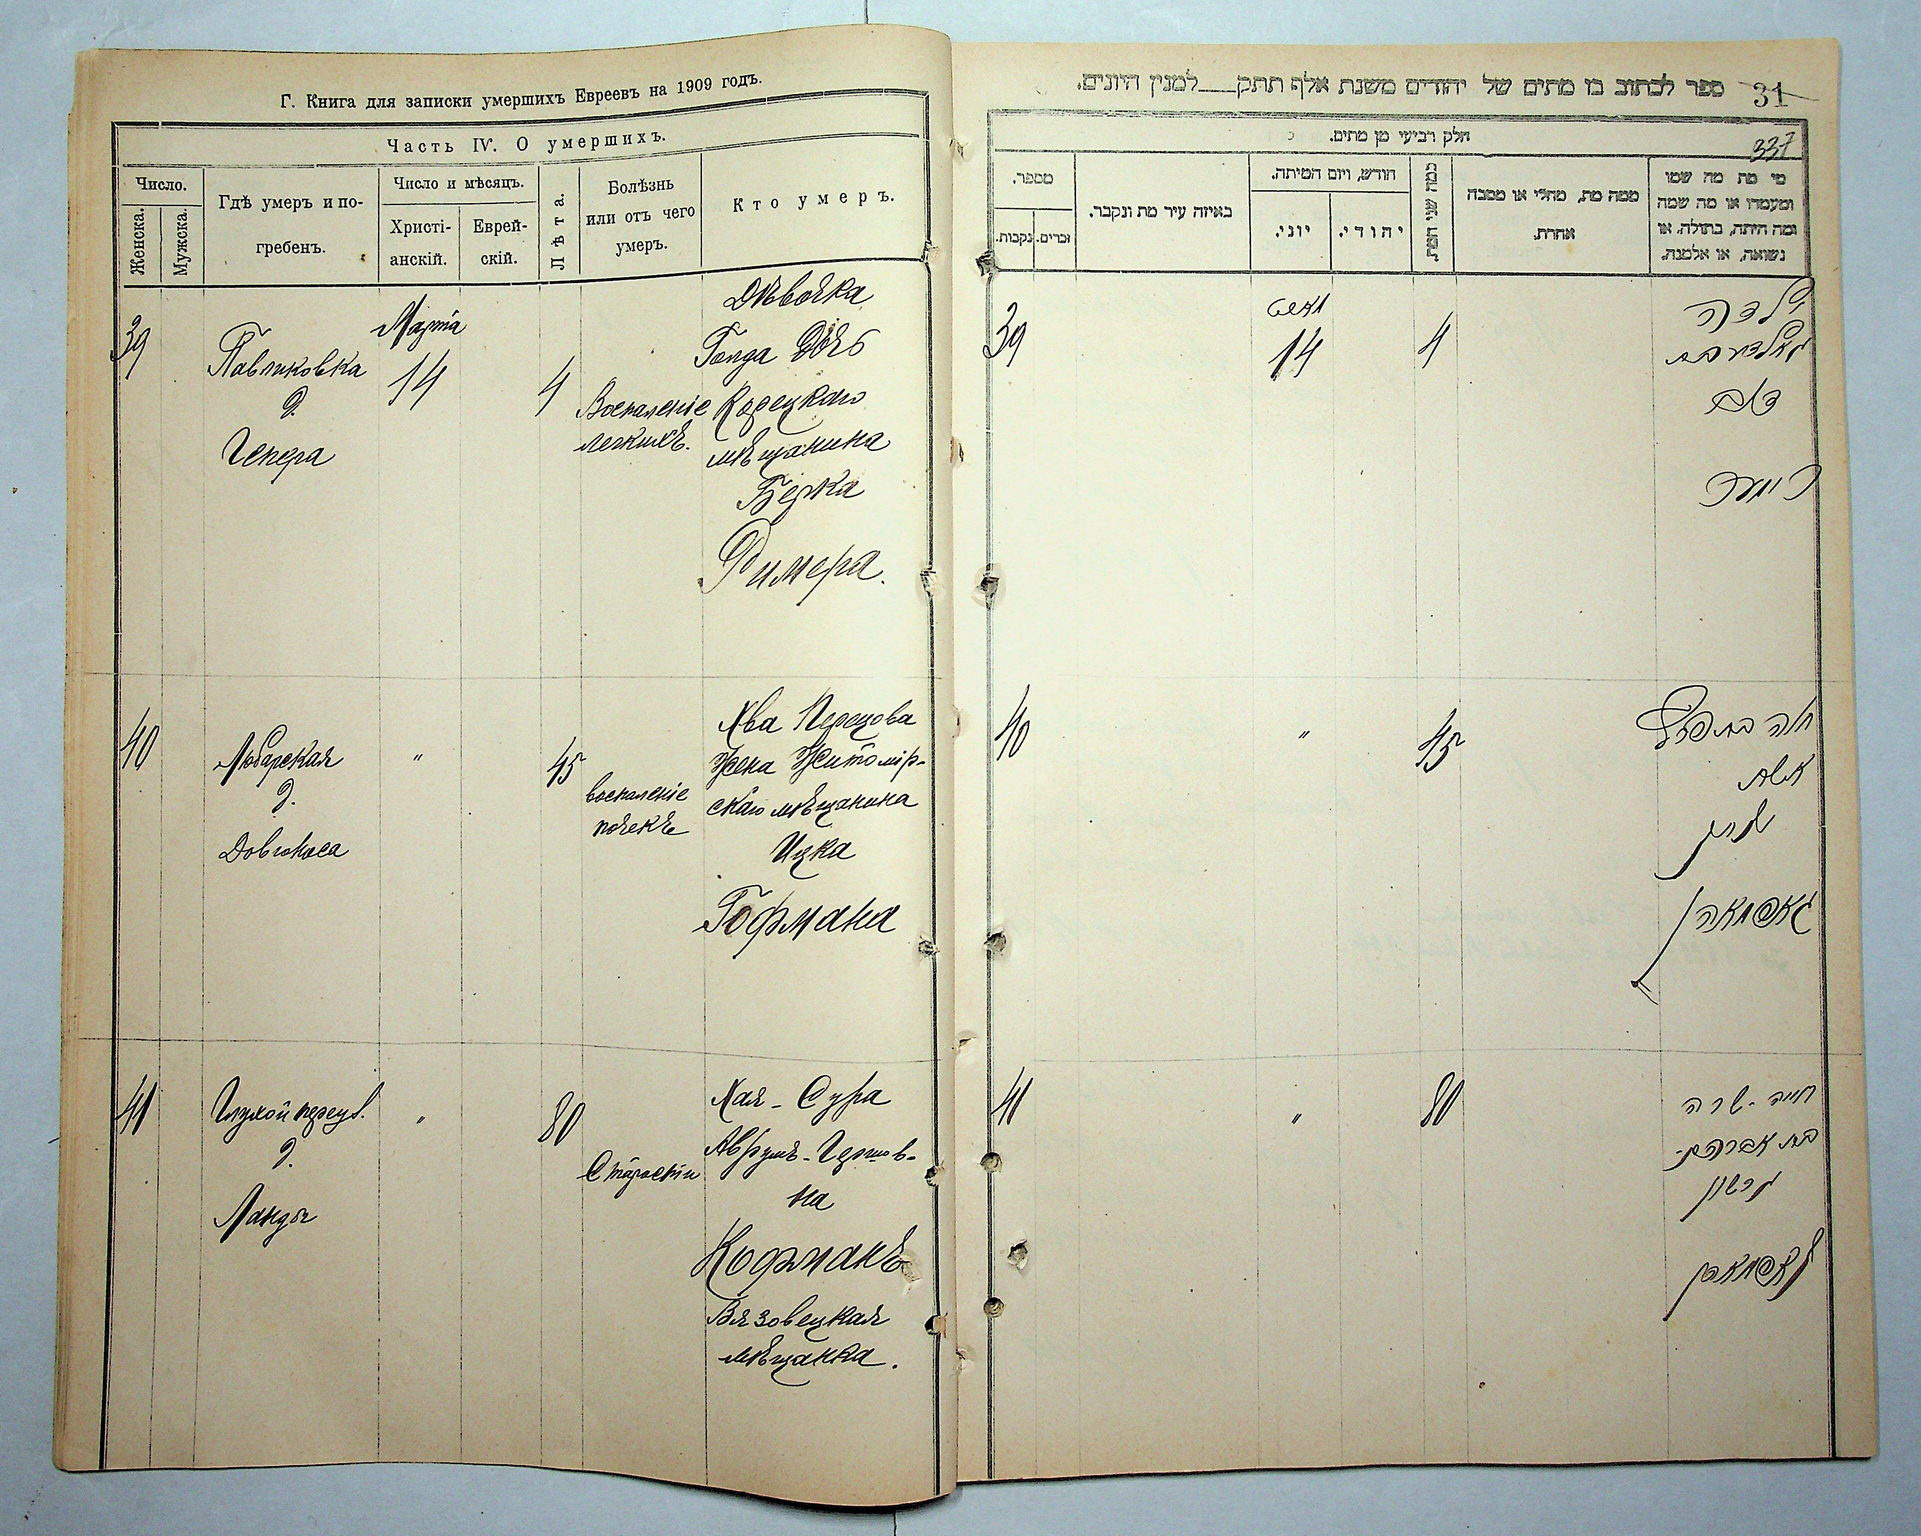 Г. Книга для записки умершихъ Евреевъ на 1909 годъ.
Часть IV. О умершихъ.
Число.
Женска.
Мужска.
Гдѣ умеръ и по-
гребенъ.
Число и мѣсяцъ.
Христі-
анскій.
Еврей-
скій.
Лѣта.
Болѣзнь
или отъ чего
умеръ.
Кто умеръ.
39
Павликовка
д.
Гепера
Марта
14
4
Воспаленіе
легкихъ.
Дѣвочка
Голда Дочь
Корецкаго
мѣщанина
Берка
Римера.
40
Любарская
д.
"
45
воспаленіе
почекъ
Хва Перецова
Жена Житомір-
скаго мѣщанина
Ицка
Гофмана
41
Глухой переул.
д.
Ланды
"
80
Старости
Хая-Сура
Аврумъ-Гершов-
на
Кофманъ
Вязовецкая
мѣщанка.
ספר לכתוב בו מתים של יהודים משנת אלף תתק___למנין היונים.
31
337
חלק רביעי מן מתים.
מספר.
נקבות.
זכרים.
באיזה עיר מת ונקבר.
חודש, ויום המיתה.
יוני.
יהודי.
כמה שני המת.
ממה מת, מחלי או מסבה
אחרת.
מי מת מה שמו
ומעמדו או מה שמה
ומה היתה, בתולה, או
נשואה, או אלמנה.
39
מאַרט
14
4
ילדה
גאלדע בת
רימער
40
"
45
חוה בת פרץ
אשת
איצק
גאפמאן
41
"
80
חיה-שרה
בת אברהם-
גרשון
קאפמאן